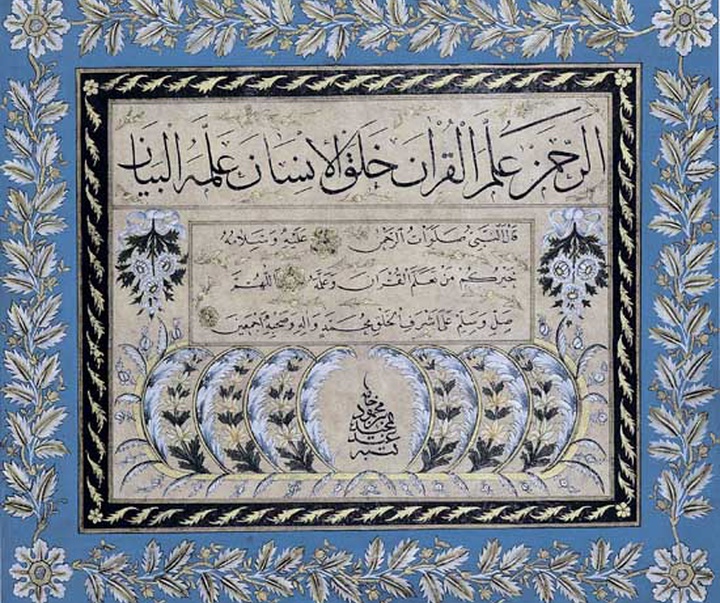 الرَّحْمٰنُ عَلَّمَ الْقُرْاٰنَ خَلَقَ الْاِنْسَانَ عَلَّمَهُ الْبَيَانَ
قَالَ النَّبِيُّ صَلَوَاتُ الرَّحْمٰنِ عَلَيْهِ وَسَلَامُهُ
خَيْرُكُمْ مَنْ تَعَلَّمَ الْقُرْاٰنَ وَعَلَّمَهُ اللّٰهُمَّ
صَلِّ وَسَلِّمْ عَلٰى اَشْرَفِ الْخَلْقِ مُحَمَّدٍ وَاٰلِهِ وَصَحْبِهِ اَجْمَعِينَ
كتبه عبد المجيد بن محمود خان